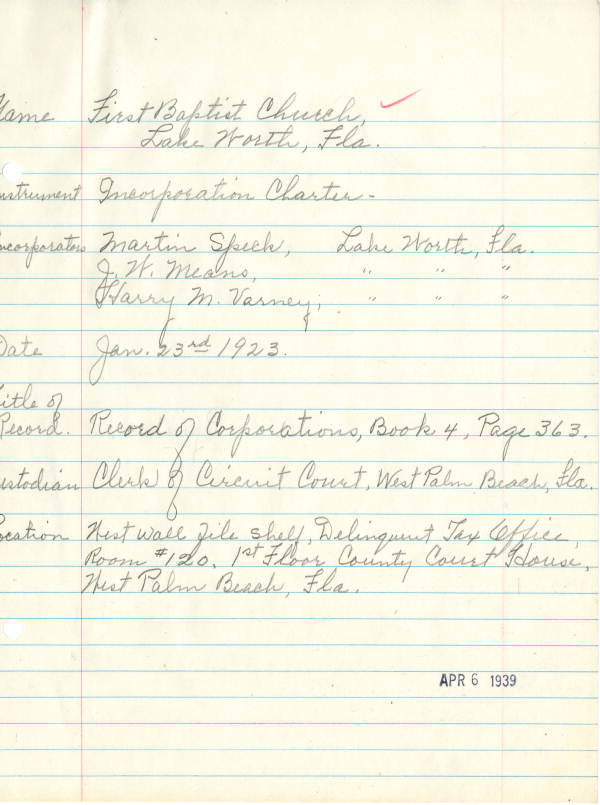 Name First Baptist Church,
Lake Worth, Fla.
Instrument Incorporation Charter-
Incorporators Martin Speck, Lake Worth, Fla.
J. W. Means, " " "
Harry M. Varney, " " "
Date Jan. 23rd 1923.
Title of
Record. Record of Corporations, Book 4, Page 363.
Custodian Clerk of Circuit Court, West Palm Beach, Fla.
Location West wall file shelf, Delinquent Tax Office,
Room #120. 1st Floor County Court House,
West Palm Beach, Fla.
APR 6 1939